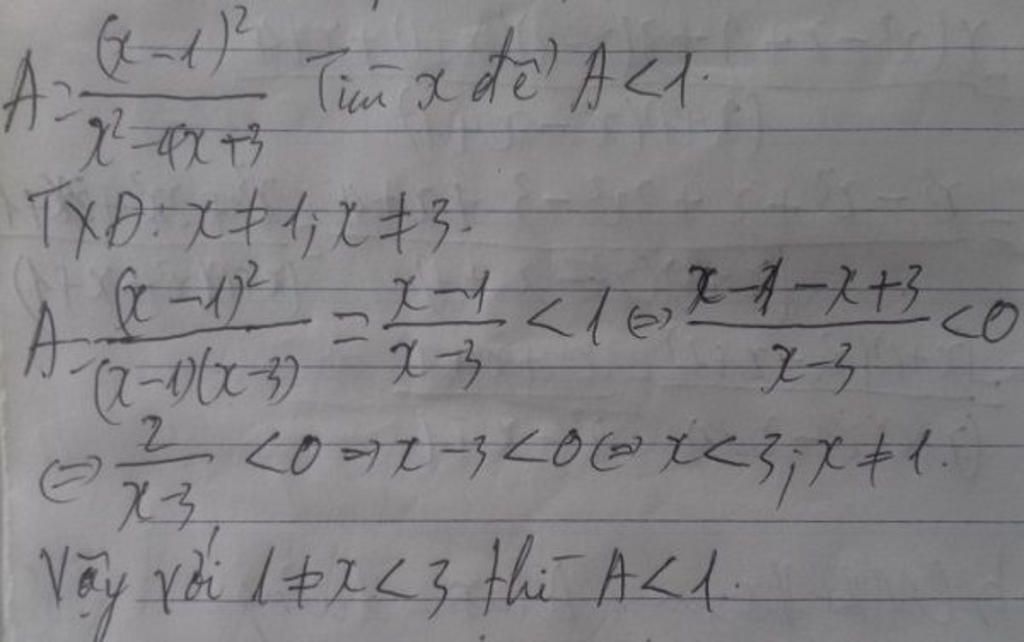 A = (x-1)² / (x² - 4x + 3) Tìm x để A < 1.
TXĐ: x ≠ 1; x ≠ 3.
A = (x-1)² / (x-1)(x-3) = (x-1) / (x-3) < 1 ⇔ (x - 1 - x + 3) / (x-3) < 0
⇔ 2 / (x-3) < 0 ⇒ x - 3 < 0 ⇔ x < 3; x ≠ 1.
Vậy với 1 ≠ x < 3 thì A < 1.